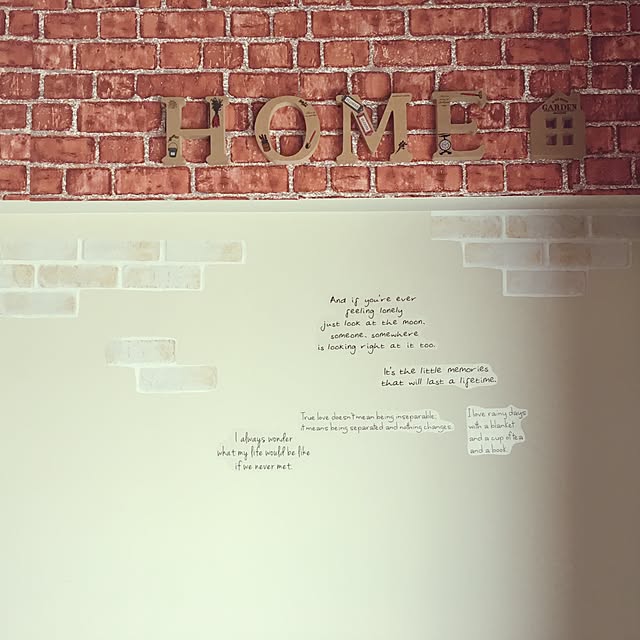 HOME
GARDEN
And if you're ever
feeling lonely
just look at the moon.
someone, somewhere
is looking right at it too.
It's the little memories
that will last a lifetime.
True love doesn't mean being inseparable,
it means being separated and nothing changes.
I love rainy days
with a blanket
and a cup of tea
and a book.
I always wonder
what my life would be like
if we never met.